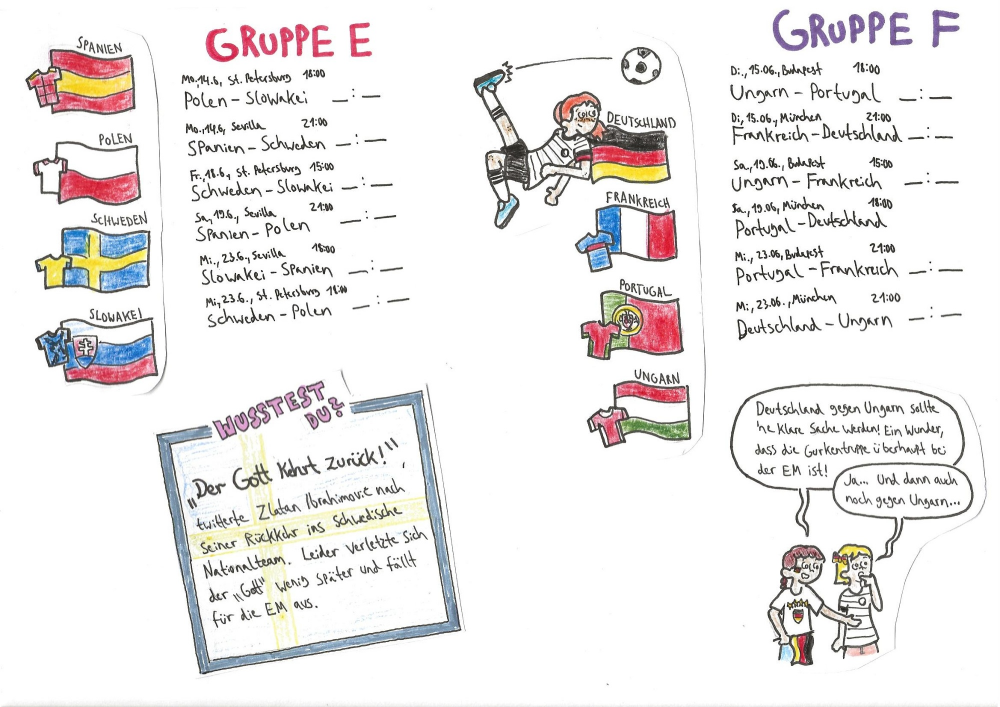 GRUPPE E
SPANIEN
POLEN
SCHWEDEN
SLOWAKEI
Mo, 14.6, St. Petersburg 18:00
Polen - Slowakei _:_
Mo., 14.6, Sevilla 21:00
Spanien - Schweden _:_
Fr., 18.6, St. Petersburg 15:00
Schweden - Slowakei _:_
Sa, 19.6., Sevilla 21:00
Spanien - Polen _:_
Mi., 23.6., Sevilla 18:00
Slowakei - Spanien _:_
Mi, 23.6., St. Petersburg 18:00
Schweden - Polen _:_
WUSSTEST
DU?
„Der Gott kehrt zurück!",
twitterte Zlatan Ibrahimovic nach
seiner Rückkehr ins schwedische
Nationalteam. Leider verletzte sich
der „Gott" wenig später und fällt
für die EM aus.
GRUPPE F
DEUTSCHLAND
FRANKREICH
PORTUGAL
UNGARN
Di., 15.06., Budapest 18:00
Ungarn - Portugal _:_
Di, 15.06., München 21:00
Frankreich - Deutschland _:_
Sa., 19.06., Budapest 15:00
Ungarn - Frankreich _:_
Sa., 19.06, München 18:00
Portugal - Deutschland
Mi., 23.06, Budapest 21:00
Portugal - Frankreich _:_
Mi, 23.06., München 21:00
Deutschland - Ungarn _:_
Deutschland gegen Ungarn sollte
'ne klare Sache werden! Ein Wunder,
dass die Gurkentruppe überhaupt bei
der EM ist!
Ja... Und dann auch
noch gegen Ungarn...